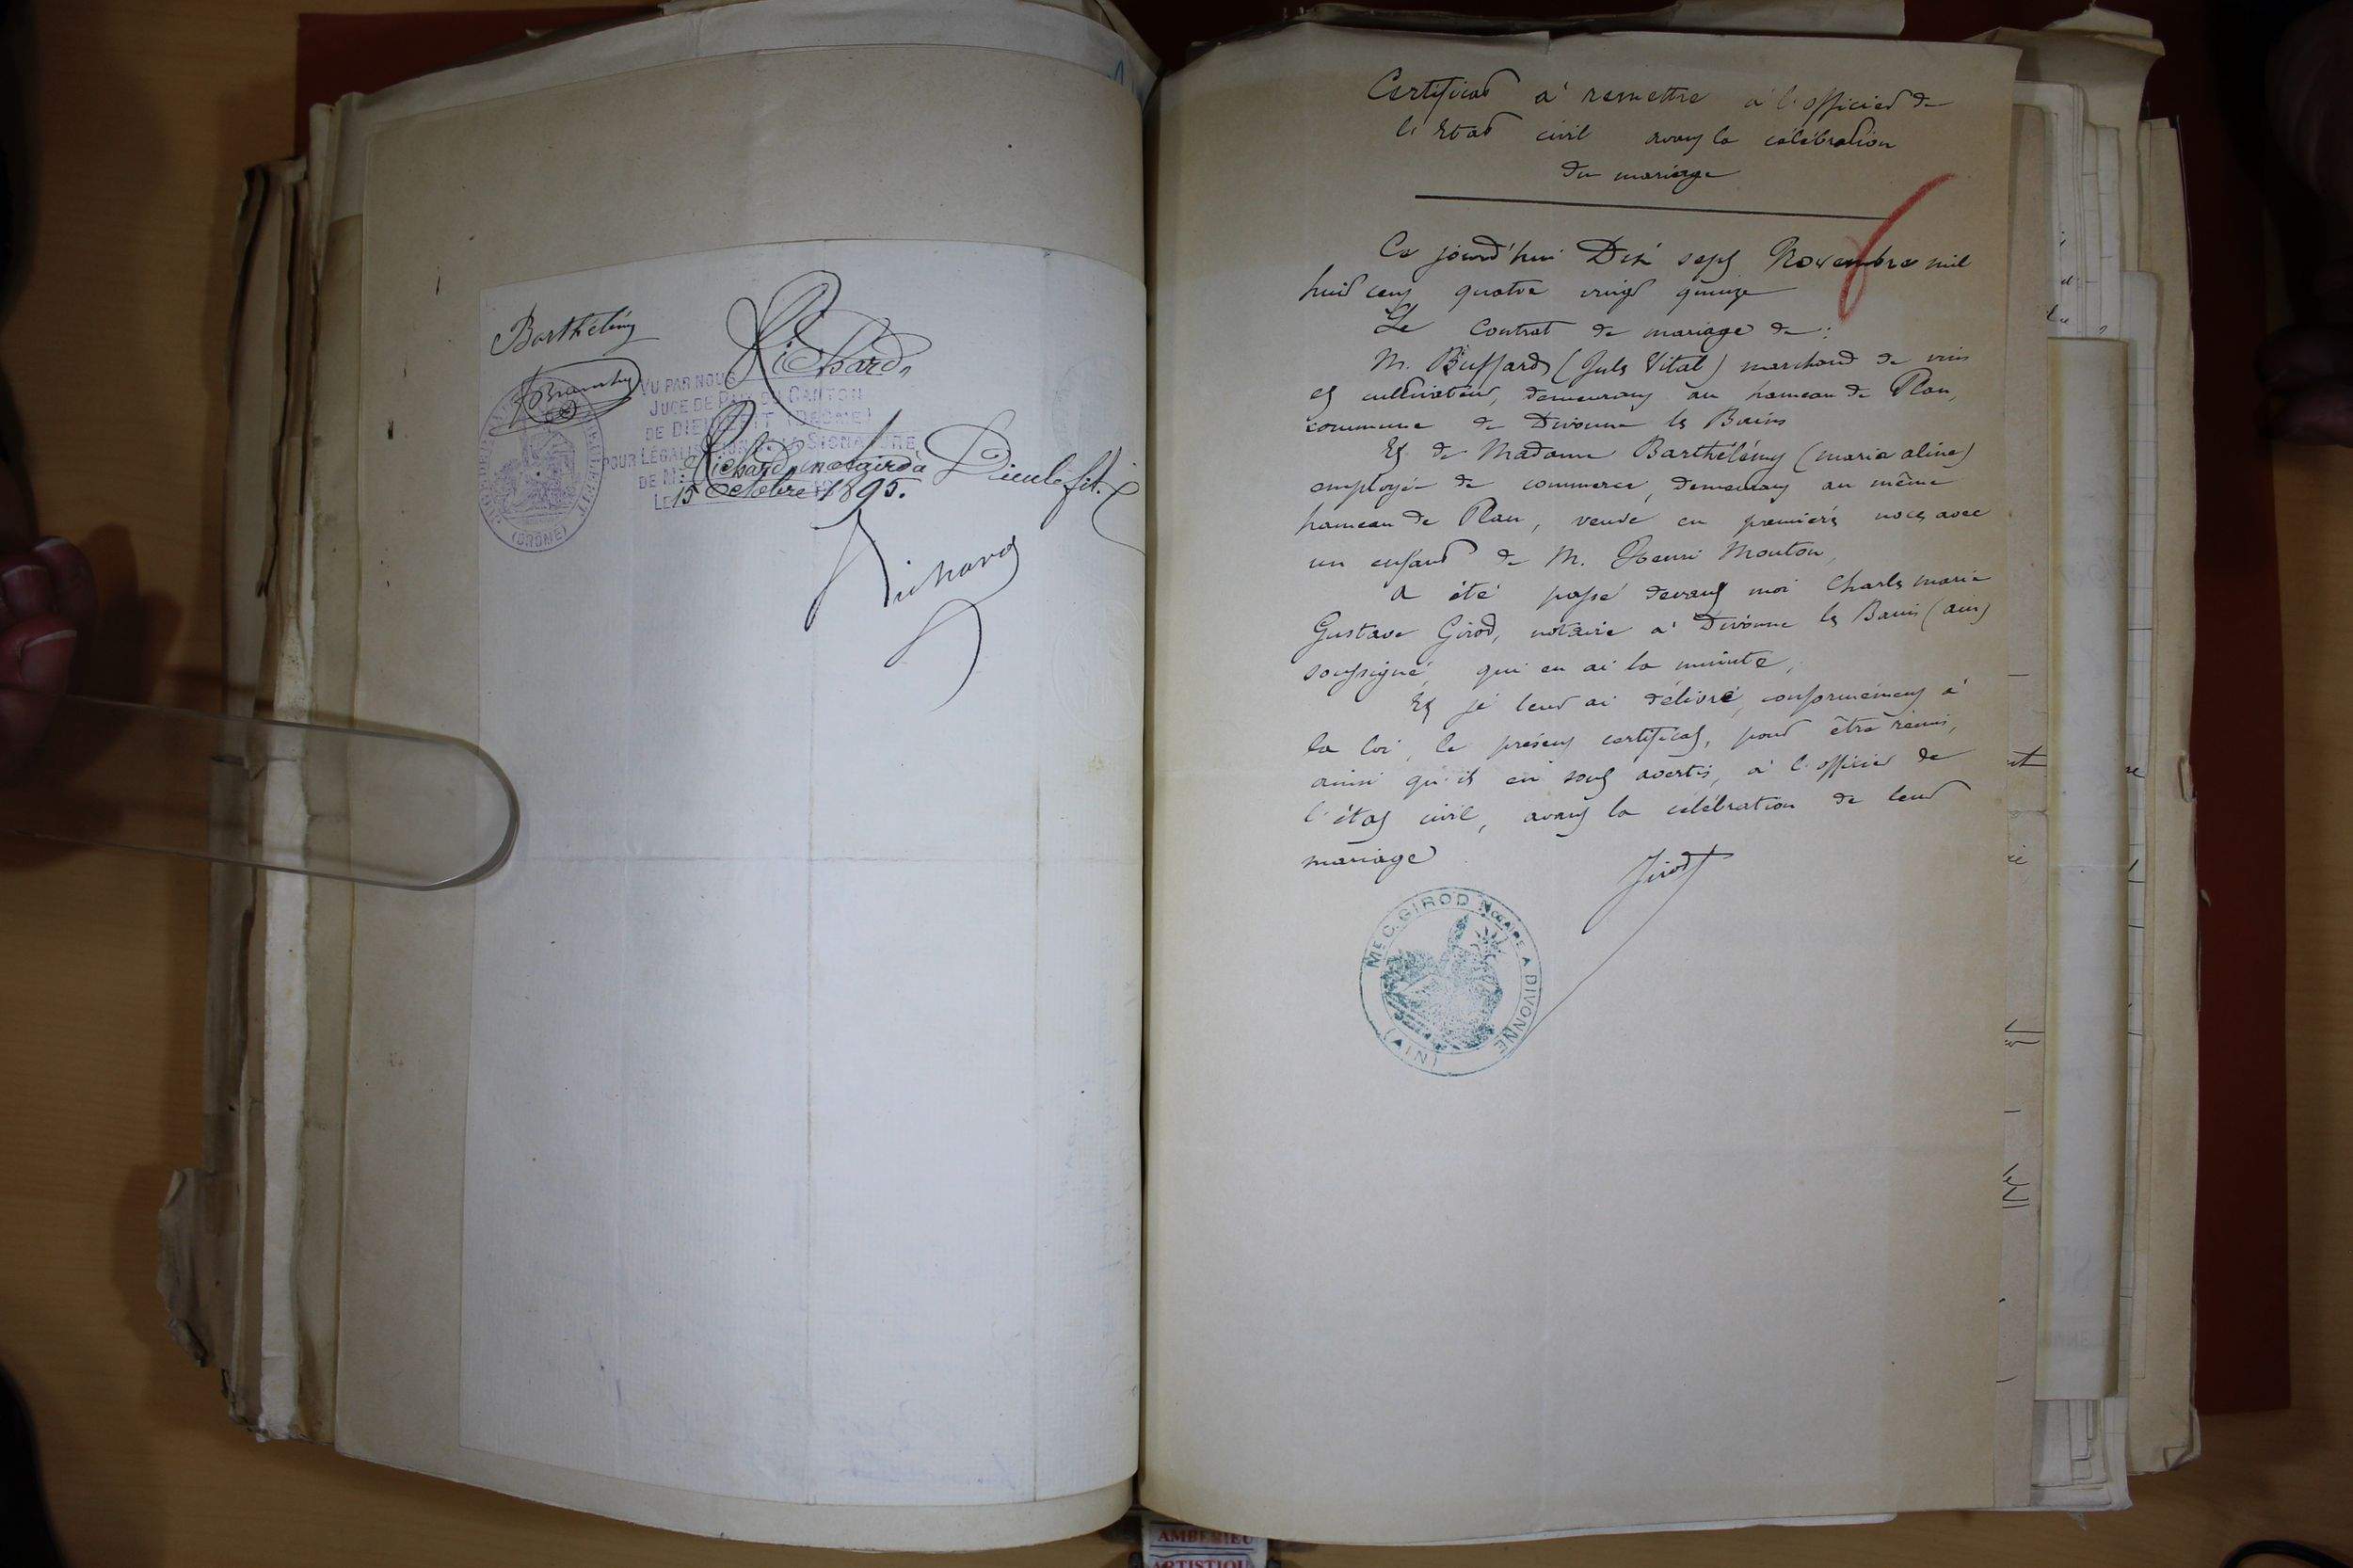 Barthélémy
Richard
VU PAR NOUS
JUGE DE PAIX DU CANTON
DE DIEULEFIT (DROME)
POUR LÉGALISATION DE LA SIGNATURE
DE Me Richard, notaire à Dieulefit.
LE 15 Octobre 1895.
(DROME)
Richard
Certificat à remettre à l'officier de
l'Etat civil avant la célébration
du mariage
Ce jourd'hui Dix sept Novembre mil
huit cent quatre vingt quinze
Le Contrat de mariage de :
M. Buffard (Jules Vital) marchand de vins
et cultivateur, demeurant au hameau de Plan,
commune de Divonne les Bains
Et de Madame Barthélémy (maria aline)
employée de commerce, demeurant au même
hameau de Plan, veuve en premières noces avec
un enfant de M. Henri Mouton,
a été passé devant moi Charles marie
Gustave Girod, notaire à Divonne les Bains (ain)
soussigné, qui en ai la minute,
Et je leur ai délivré, conformément à
la loi, le présent certificat, pour être remis,
ainsi qu'ils en sont avertis, à l'officier de
l'état civil, avant la célébration de leur
mariage
Girod
ME C. GIROD NOTAIRE A DIVONNE
(AIN)
AMBERIEU
ARTISTIQU